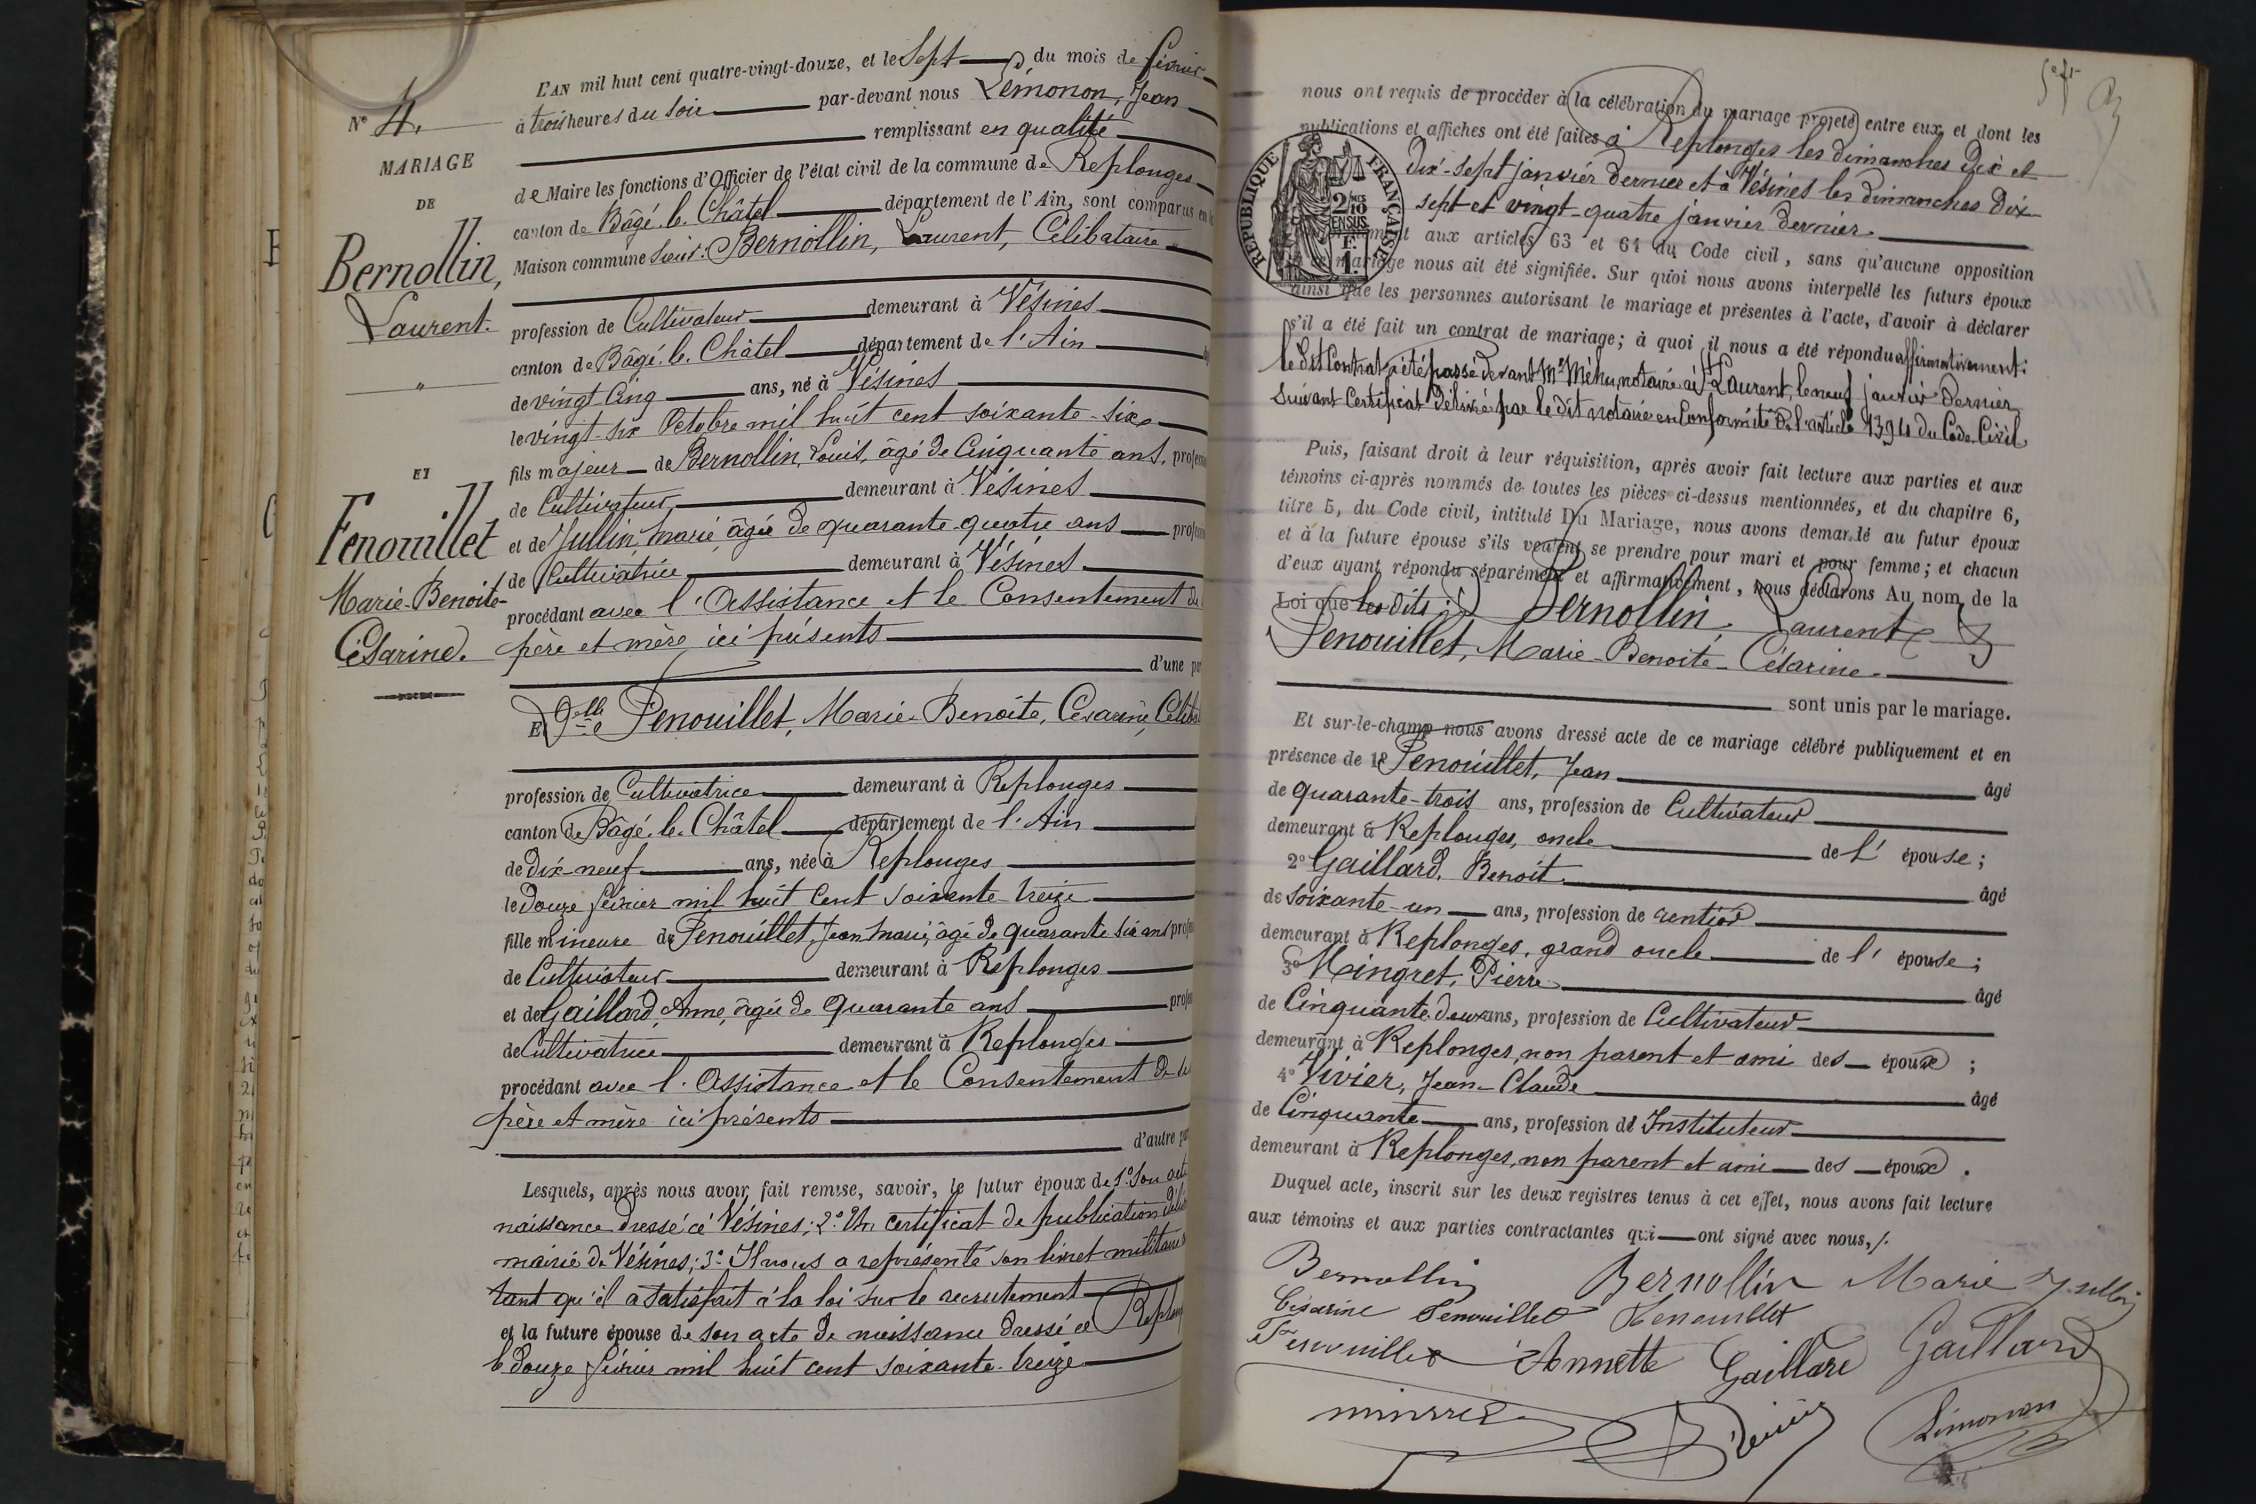 L'AN mil huit cent quatre-vingt-douze, et le Sept du mois de Février
à trois heures du Soir par-devant nous Lémonon, Jean
remplissant en qualité
de Maire les fonctions d'Officier de l'état civil de la commune de Replonges
canton de Bâgé-le-Châtel département de l'Ain, sont comparus en la
Maison commune Sieur: Bernollin, Laurent, Célibataire
profession de Cultivateur demeurant à Vésines
canton de Bâgé-le-Châtel département de l'Ain
de vingt Cinq ans, né à Vésines
le vingt-six Octobre mil huit cent soixante-six
fils majeur de Bernollin, Louis, âgé de Cinquante ans, profes
de Cultivateur demeurant à Vésines
et de Jullin Marie âgée de quarante-quatre ans profes
de Cultivatrice demeurant à Vésines
procédant avec l'Assistance et le Consentement de
père et mère ici présents
d'une pa
Et Delle Fenouillet, Marie-Benoite, Césarine, Céliba
profession de Cultivatrice demeurant à Replonges
canton de Bâgé-le-Châtel département de l'Ain
de dix-neuf ans, née à Replonges
le douze février mil huit cent soixante-treize
fille mineure de Fenouillet, Jean Marie, âgé de quarante six ans profes
de Cultivateur demeurant à Replonges
et de Gaillard, Anne, âgée de Quarante ans profes
de Cultivatrice demeurant à Replonges
procédant avec l'Assistance et le Consentement de ses
père et mère ici présents
d'autre pa
Lesquels, après nous avoir fait remise, savoir, le futur époux de 1° Son acte
naissance dressé à Vésines; 2° Un certificat de publication déliv
mairie de Vésines; 3° Il nous a représenté son livret militaire
tant qu'il a satisfait à la loi sur le recrutement
et la future épouse de son acte de naissance dressé à Replong
le douze février mil huit cent soixante-treize
N° 4.
MARIAGE
DE
Bernollin,
Laurent.
"
ET
Fenouillet
Marie-Benoite-
Césarine.
5e ft
nous ont requis de procéder à la célébration du mariage projeté entre eux et dont les
publications et affiches ont été faites à Replonges les dimanches dix et
dix-sept janvier dernier et à Vésines les dimanches dix-
sept et vingt-quatre janvier dernier.
aux articles 63 et 64 du Code civil, sans qu'aucune opposition
mariage nous ait été signifiée. Sur quoi nous avons interpellé les futurs époux
ainsi que les personnes autorisant le mariage et présentes à l'acte, d'avoir à déclarer
s'il a été fait un contrat de mariage; à quoi il nous a été répondu affirmativement:
le dit Contrat a été passé devant Me Méhu, notaire à St Laurent, le neuf janvier dernier
Suivant Certificat délivré par le dit notaire en Conformité de l'article 1394 du Code Civil.
RÉPUBLIQUE FRANÇAISE
2/10
EN SUS
F.
1.
Puis, faisant droit à leur réquisition, après avoir fait lecture aux parties et aux
témoins ci-après nommés de toutes les pièces ci-dessus mentionnées, et du chapitre 6,
titre 5, du Code civil, intitulé Du Mariage, nous avons demandé au futur époux
et à la future épouse s'ils veulent se prendre pour mari et pour femme; et chacun
d'eux ayant répondu séparément et affirmativement, nous déclarons Au nom de la
Loi que les dits: Bernollin, Laurent &
Fenouillet, Marie-Benoite-Césarine
sont unis par le mariage.
Et sur-le-champ nous avons dressé acte de ce mariage célébré publiquement et en
présence de 1° Fenouillet, Jean âgé
de quarante-trois ans, profession de Cultivateur
demeurant à Replonges, oncle de l' épouse;
2° Gaillard, Benoit âgé
de soixante-un ans, profession de rentier
demeurant à Replonges, grand oncle de l' épouse;
3° Mingret, Pierre âgé
de Cinquante-deux ans, profession de Cultivateur
demeurant à Replonges, non parent et ami des époux;
4° Vivier, Jean-Claude âgé
de Cinquante ans, profession de Instituteur
demeurant à Replonges, non parent et ami des époux.
Duquel acte, inscrit sur les deux registres tenus à cet effet, nous avons fait lecture
aux témoins et aux parties contractantes qui ont signé avec nous,/.
Bernollin Bernollin Marie Jullin
Césarine Fenouillet Fenouillet
Fenouillet Annette Gaillard Gaillard
Vivier Lémonon